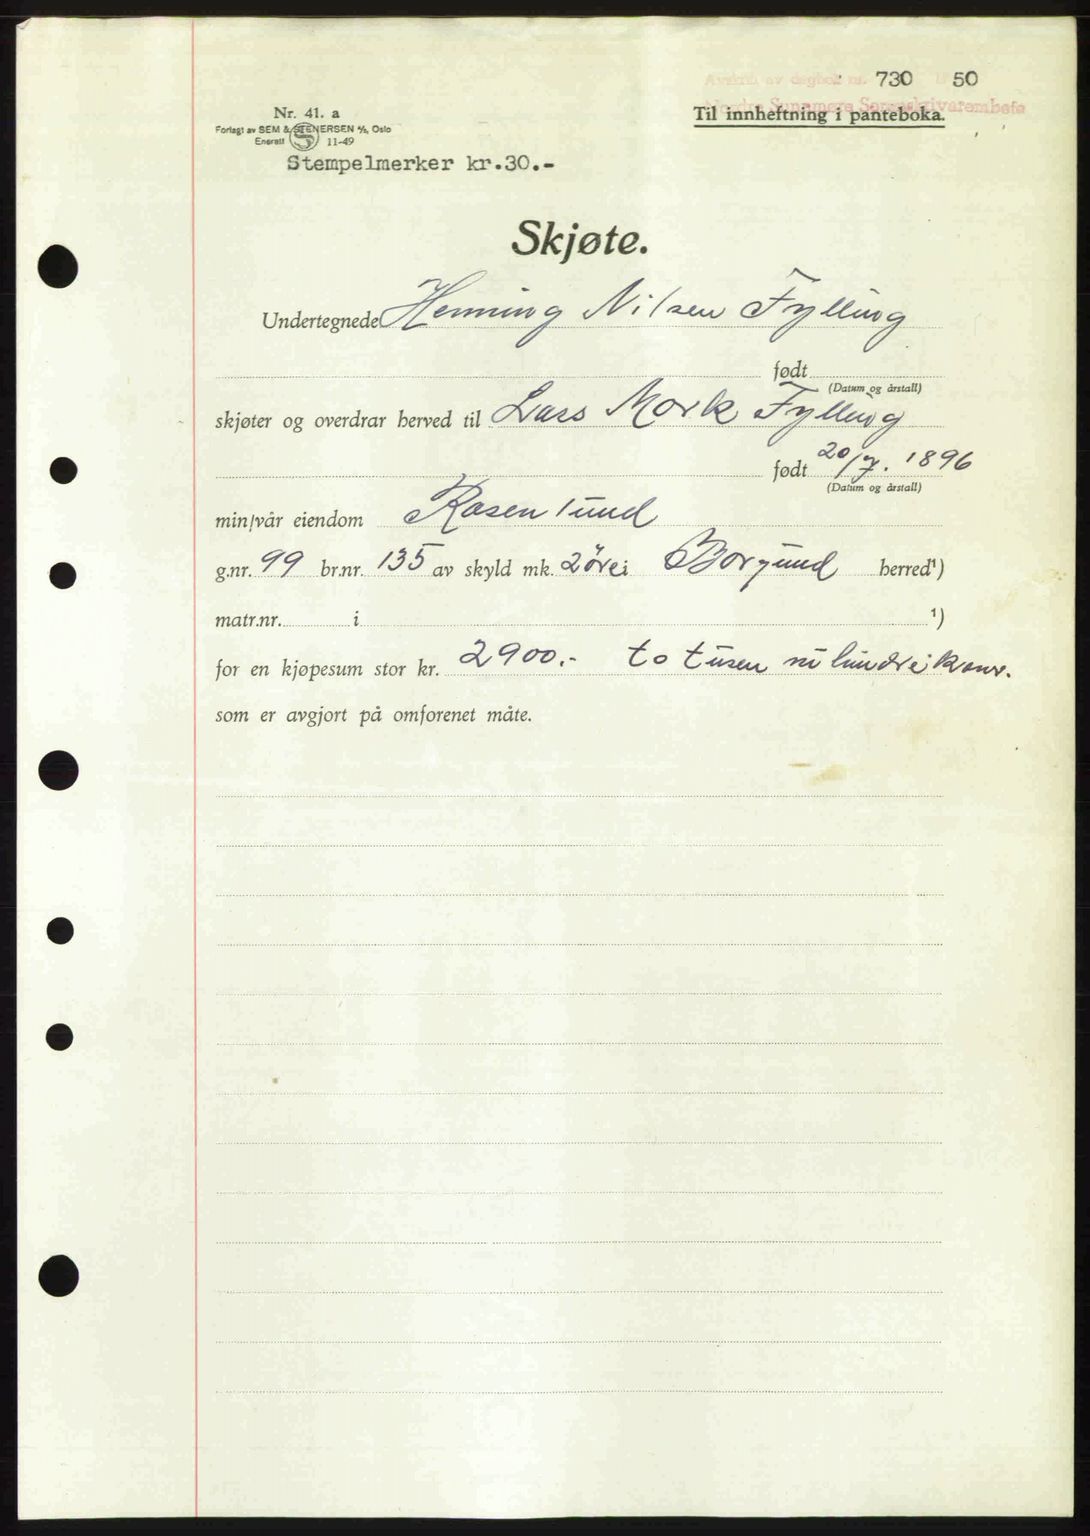 Avskrift av dagbok nr. 730 50
Nordre Sunnmøre Sorenskriverembete
Nr. 41. a
Til innheftning i panteboka.
Forlagt av SEM & STENERSEN A/S, Oslo
Enerett 11-49
Stempelmerker kr.30.-
Skjøte.
Undertegnede Henning Nilsen Fylling
født
(Datum og årstall)
skjøter og overdrar herved til Lars Mork Fylling
født 20/7. 1896
(Datum og årstall)
min/vår eiendom Rosenlund
g.nr. 99 br.nr. 135 av skyld mk. 2 øre i Borgund herred¹)
matr.nr. i ¹)
for en kjøpesum stor kr. 2900.- to tusen ni hundre kroner.
som er avgjort på omforenet måte.